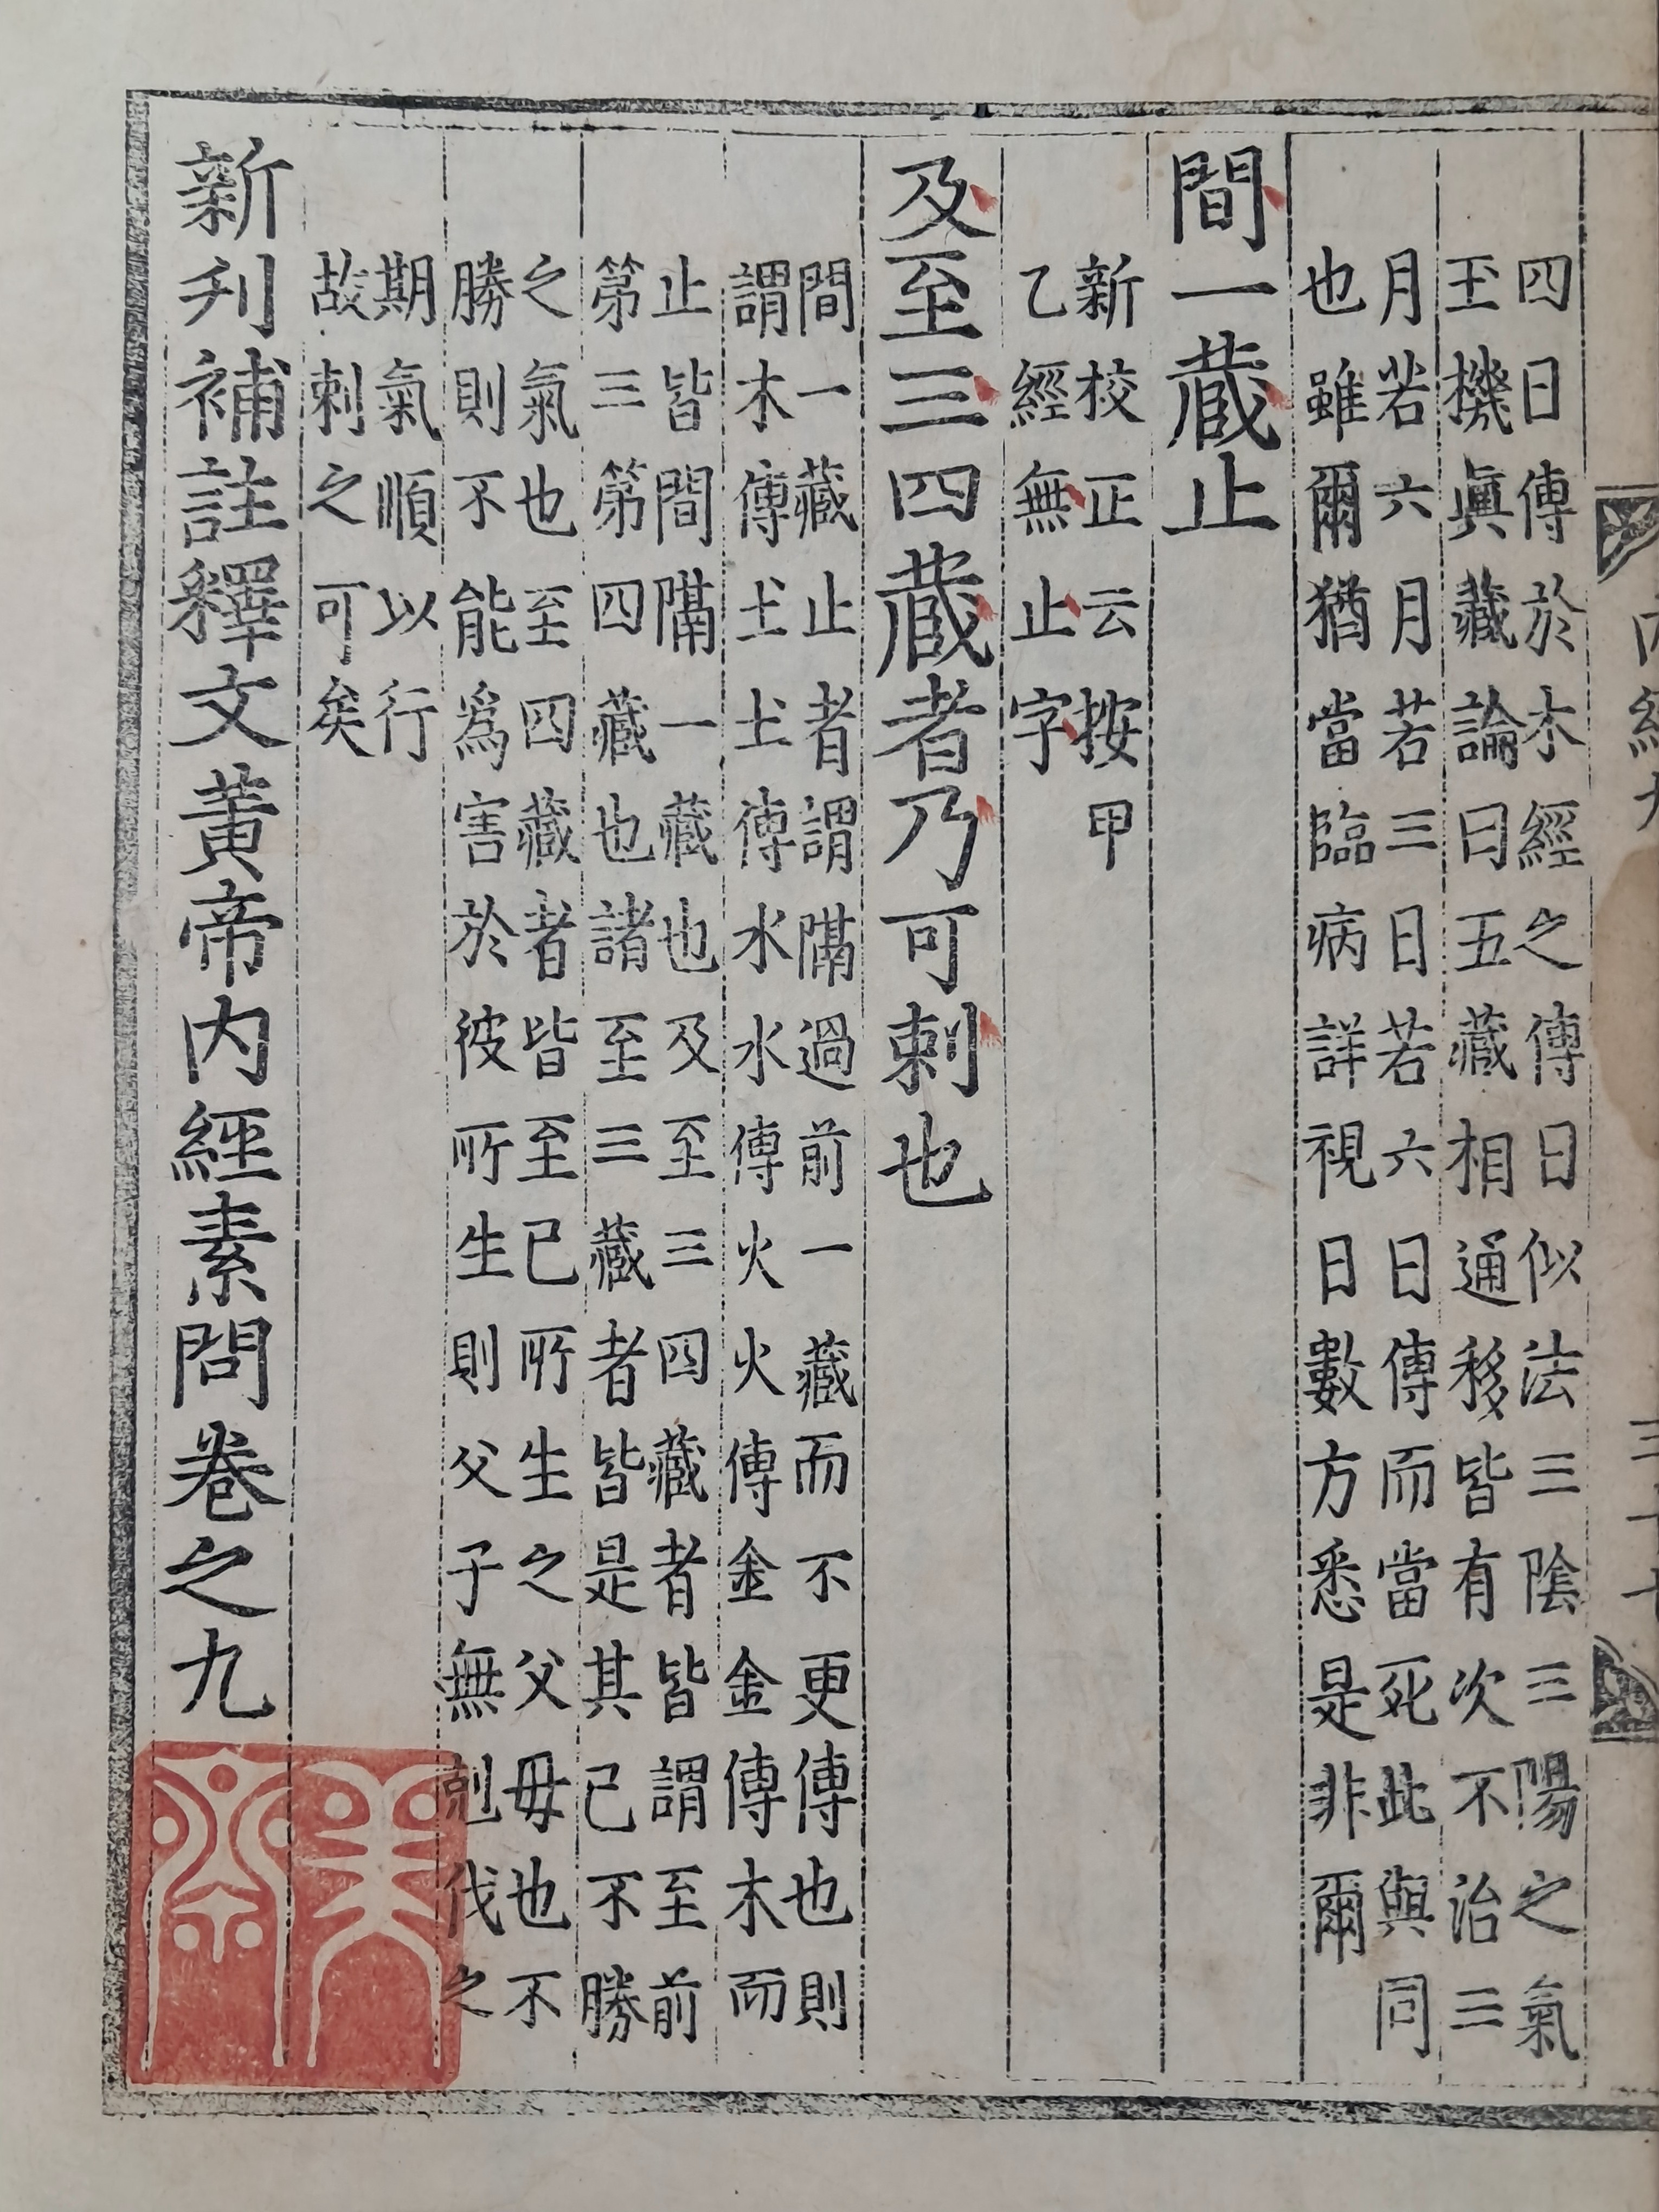 四日傳於木經之傳日似法三陰三陽之氣
玉機眞藏論曰五藏相通移皆有次不治三
月若六月若三日若六日傳而當死此與同
也雖爾猶當臨病詳視日數方悉是非爾
間一藏止
新校正云按甲
乙經無止字
及至三四藏者乃可刺也
間一藏止者謂隔過前一藏而不更傳也則
謂木傳土土傳水水傳火火傳金金傳木而
止皆間隔一藏也及至三四藏者皆謂至前
第三第四藏也諸至三藏者皆是其己不勝
之氣也至四藏者皆至己所生之父母也不
勝則不能爲害於彼所生則父子無剋伐之
期氣順以行
故刺之可矣
新刋補註釋文黃帝內經素問卷之九